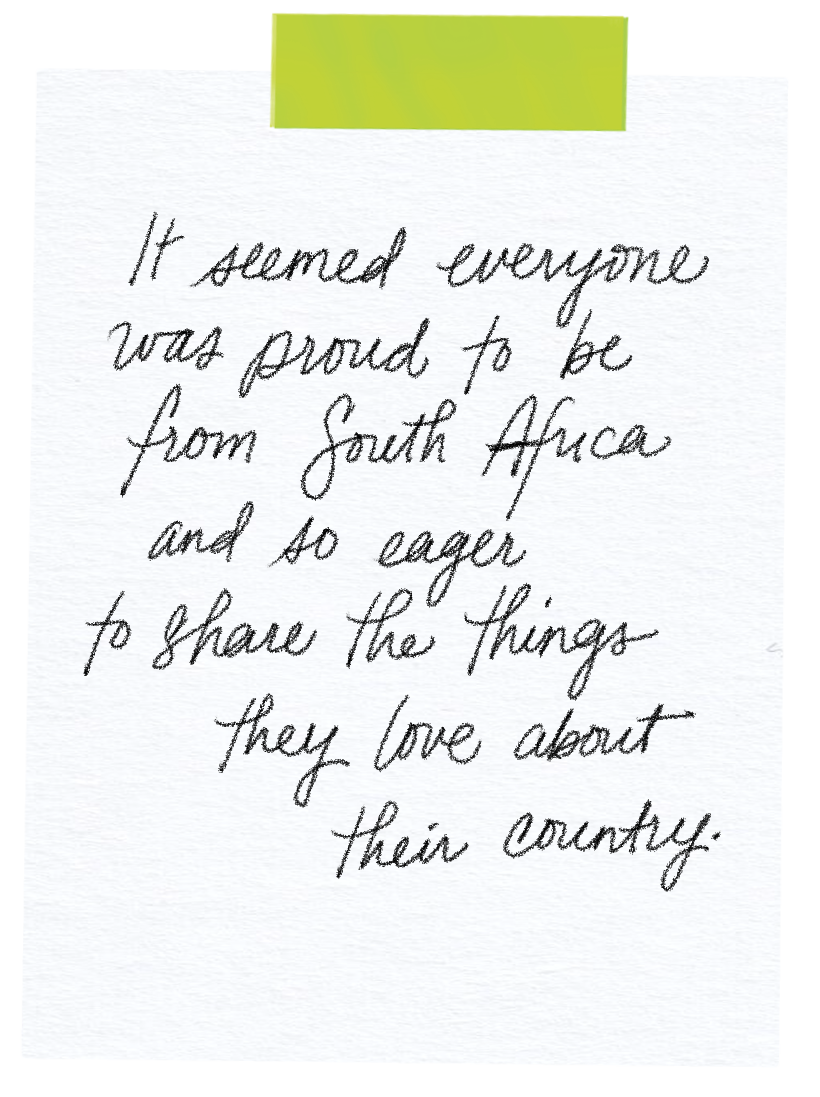 It seemed everyone
was proud to be
from South Africa
and so eager
to share the things
they love about
their country.